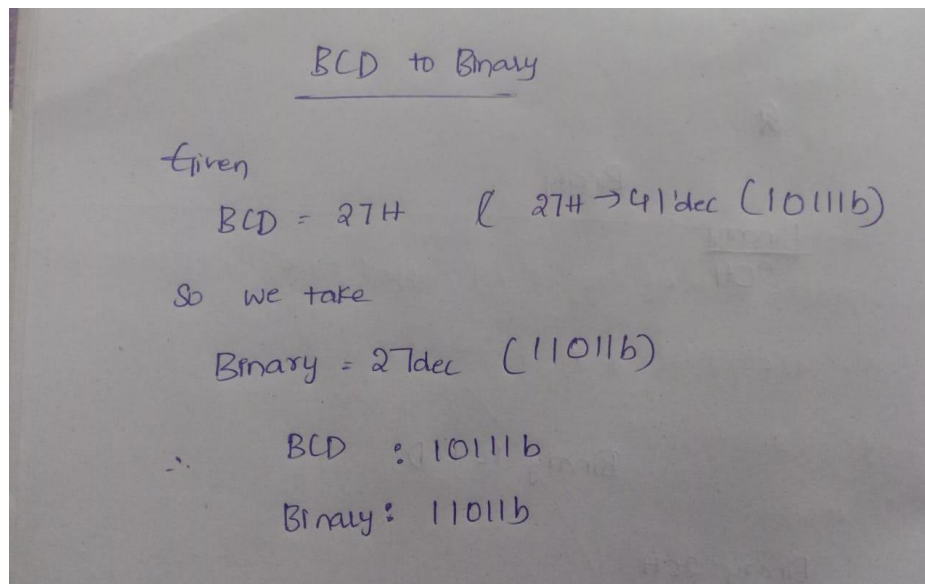 BCD to Binary
Given
BCD = 27H ( 27H → 41 dec (10111b)
So we take
Binary = 27dec (11011b)
∴ BCD : 10111b
Binary : 11011b